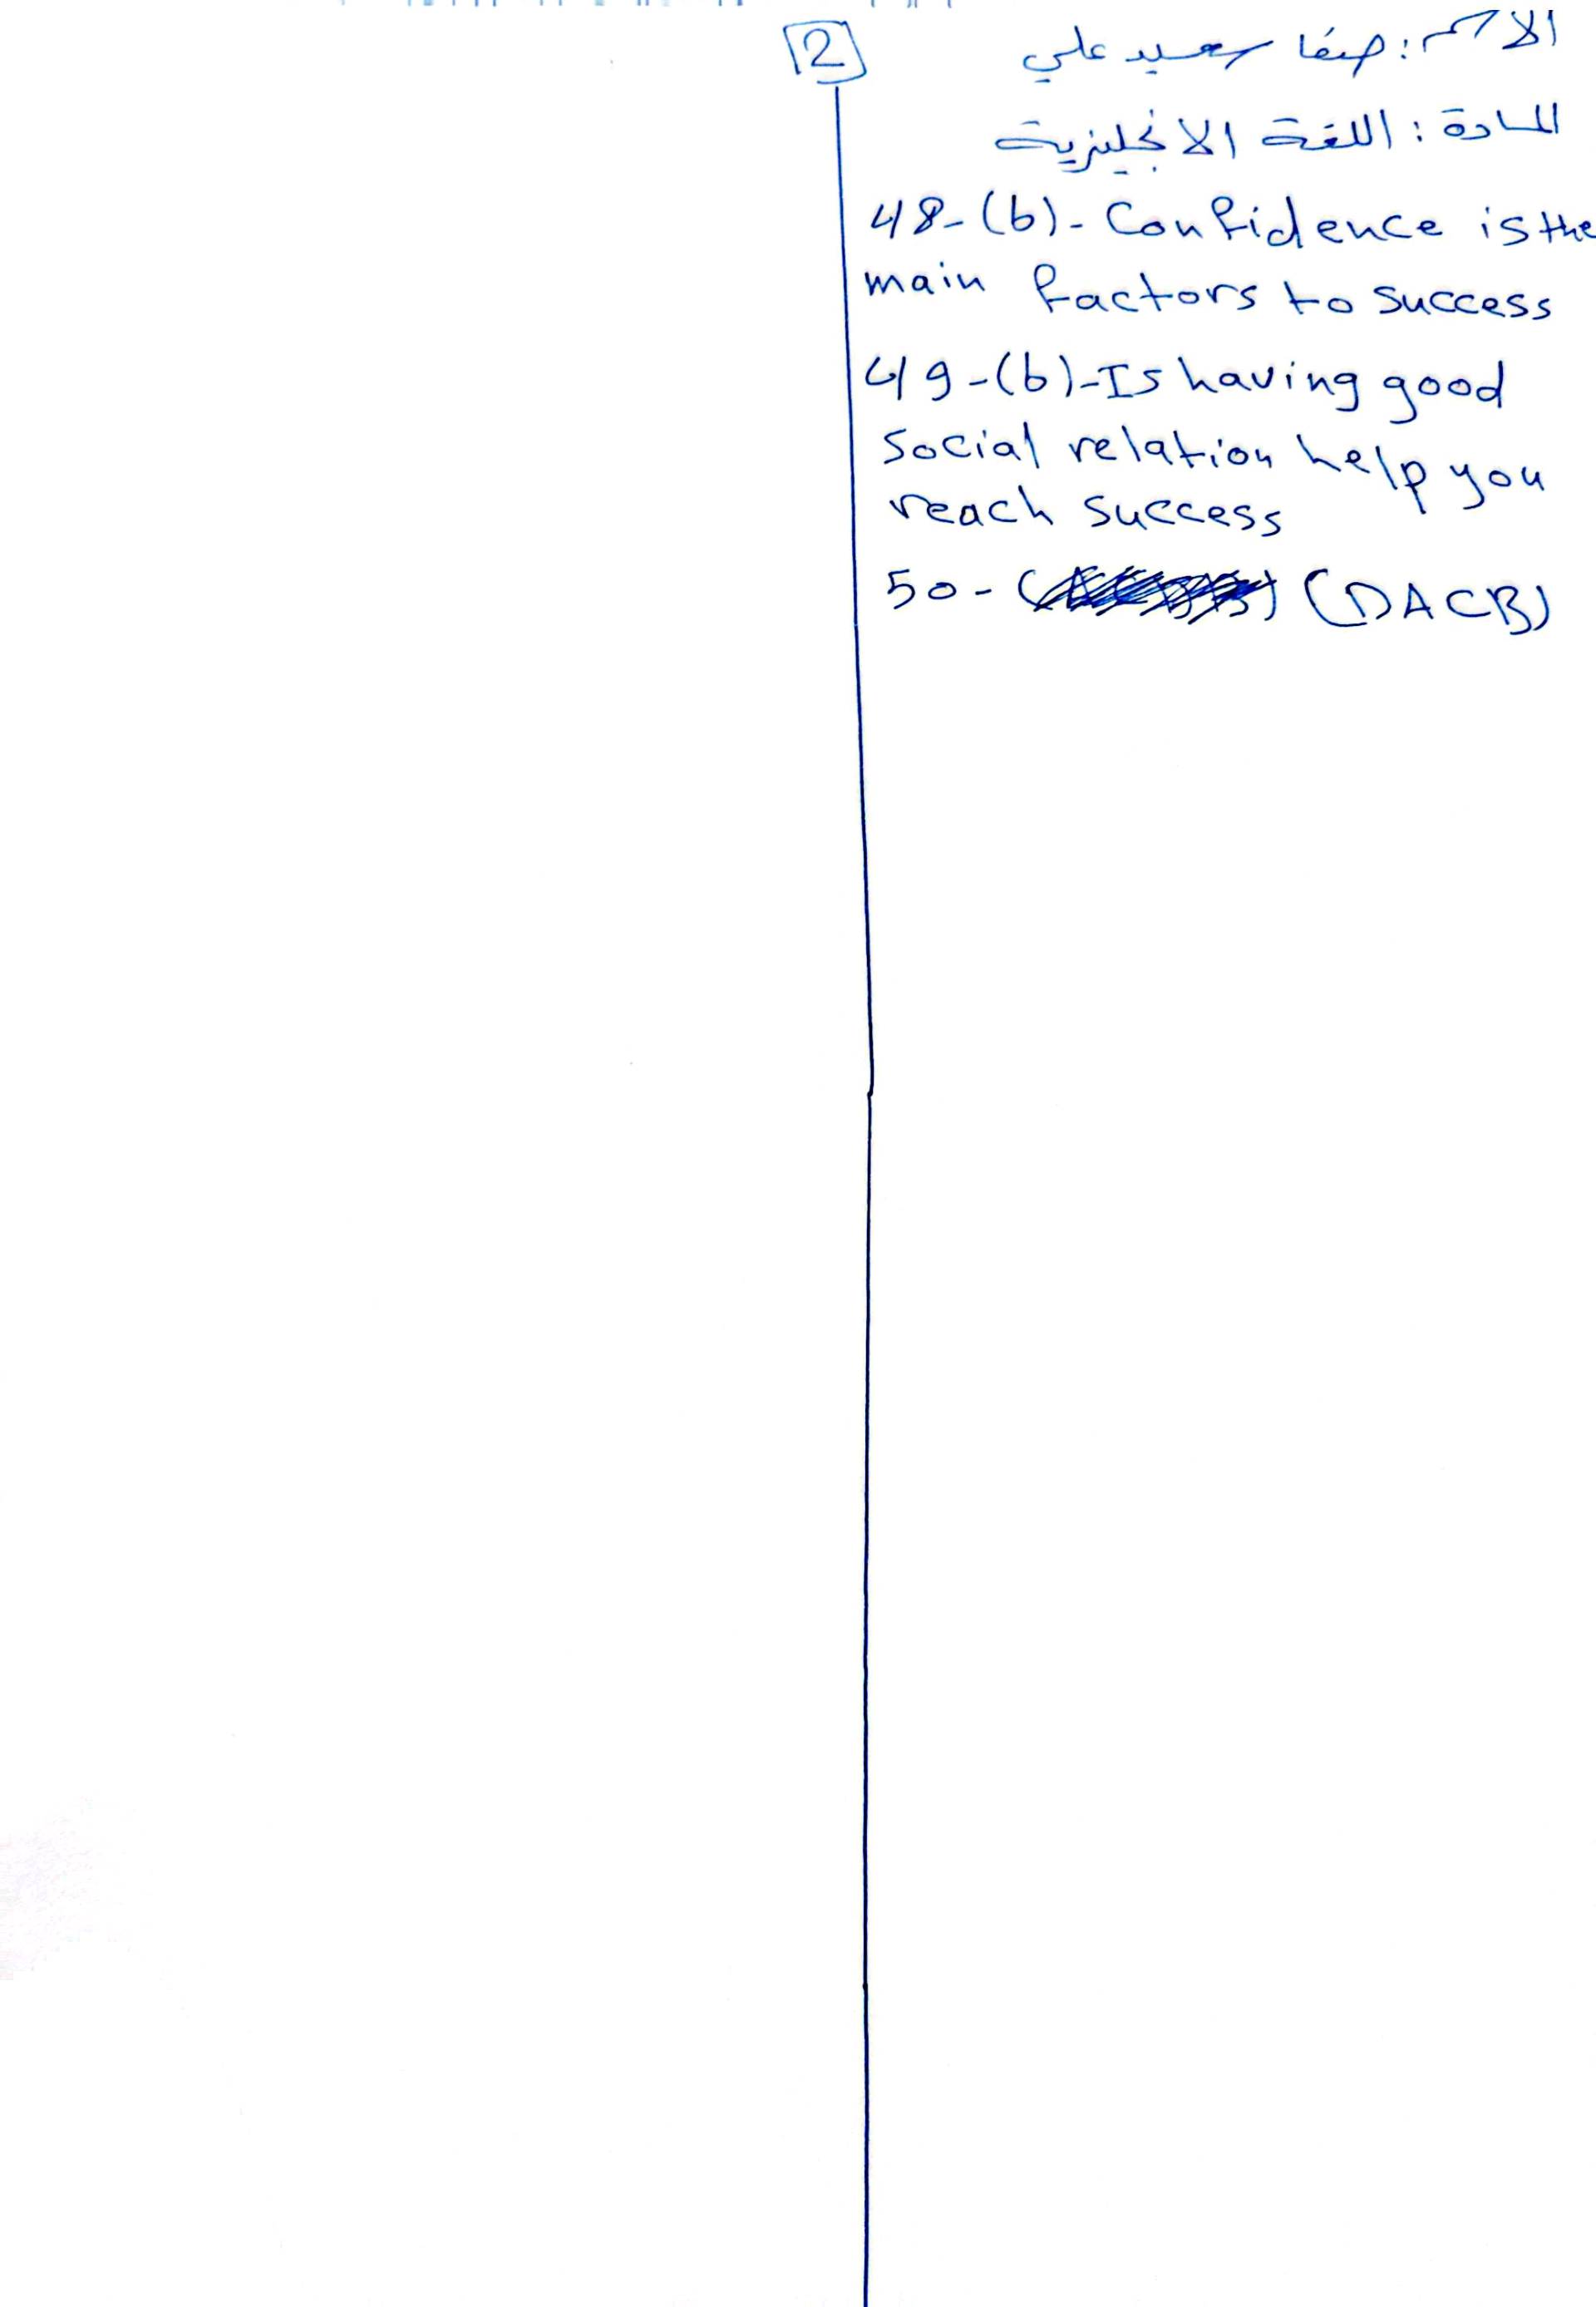 2
الاسم: صفا سعيد علي
المادة: اللغة الانجليزية
48-(b)- Confidence is the
main factors to success
49-(b)-Is having good
social relation help you
reach success
50- (DACB)